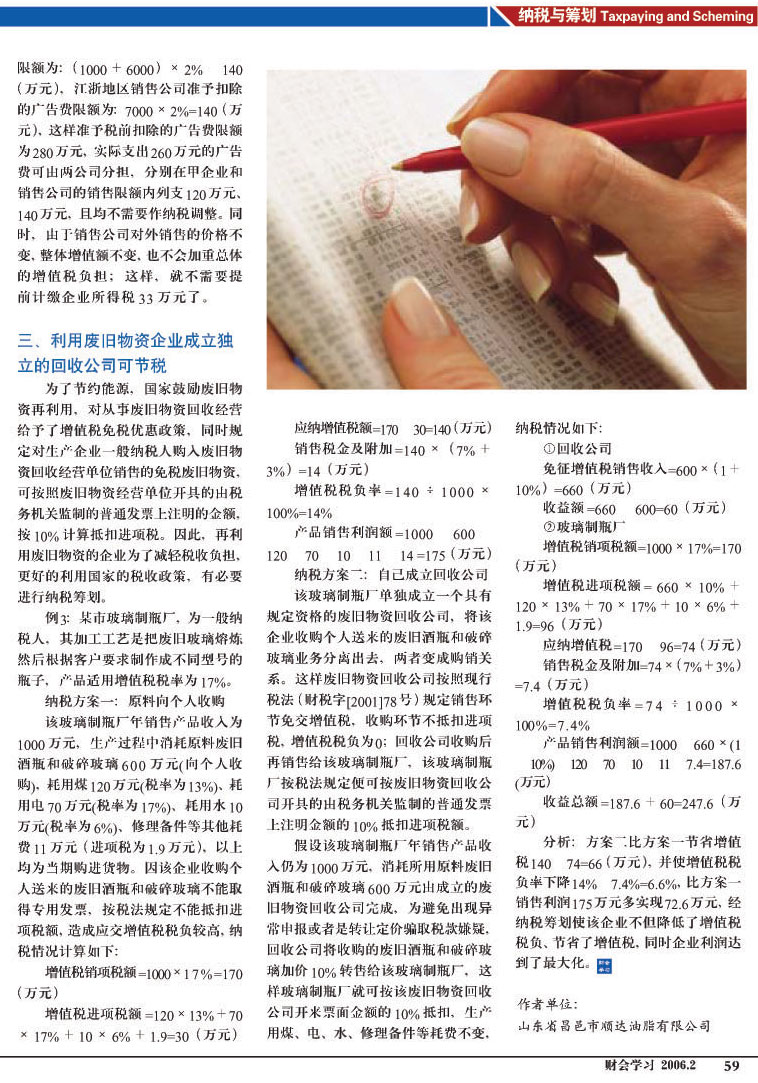 纳税与筹划 Taxpaying and Scheming
限额为:（1000 + 6000）× 2% 140
（万元），江浙地区销售公司准予扣除
的广告费限额为: 7000 × 2%=140（万
元），这样准予税前扣除的广告费限额
为280万元，实际支出260万元的广告
费可由两公司分担，分别在甲企业和
销售公司的销售限额内列支120万元、
140万元，且均不需要作纳税调整。同
时，由于销售公司对外销售的价格不
变，整体增值额不变，也不会加重总体
的增值税负担；这样，就不需要提
前计缴企业所得税 33 万元了。
三、利用废旧物资企业成立独
立的回收公司可节税
为了节约能源，国家鼓励废旧物
资再利用，对从事废旧物资回收经营
给予了增值税免税优惠政策，同时规
定对生产企业一般纳税人购入废旧物
资回收经营单位销售的免税废旧物资，
可按照废旧物资经营单位开具的由税
务机关监制的普通发票上注明的金额，
按 10% 计算抵扣进项税。因此，再利
用废旧物资的企业为了减轻税收负担，
更好的利用国家的税收政策，有必要
进行纳税筹划。
例 3：某市玻璃制瓶厂，为一般纳
税人，其加工工艺是把废旧玻璃熔炼
然后根据客户要求制作成不同型号的
瓶子，产品适用增值税税率为 17%。
纳税方案一：原料向个人收购
该玻璃制瓶厂年销售产品收入为
1000 万元，生产过程中消耗原料废旧
酒瓶和破碎玻璃 600 万元(向个人收
购)，耗用煤 120 万元(税率为 13%)、耗
用电 70 万元(税率为 17%)、耗用水 10
万元(税率为 6%)、修理备件等其他耗
费 11 万元（进项税为 1.9 万元），以上
均为当期购进货物。因该企业收购个
人送来的废旧酒瓶和破碎玻璃不能取
得专用发票，按税法规定不能抵扣进
项税额，造成应交增值税税负较高，纳
税情况计算如下：
增值税销项税额=1000 × 17%=170
（万元）
增值税进项税额 =120 × 13% + 70
× 17% + 10 × 6% + 1.9=30（万元）
应纳增值税额=170 30=140（万元）
销售税金及附加 =140 ×（7% +
3%）=14（万元）
增值税税负率 =140 ÷ 1000 ×
100%=14%
产品销售利润额 =1000 600
120 70 10 11 14 =175（万元）
纳税方案二：自己成立回收公司
该玻璃制瓶厂单独成立一个具有
规定资格的废旧物资回收公司，将该
企业收购个人送来的废旧酒瓶和破碎
玻璃业务分离出去，两者变成购销关
系。这样废旧物资回收公司按照现行
税法（财税字[2001]78 号）规定销售环
节免交增值税，收购环节不抵扣进项
税，增值税税负为0；回收公司收购后
再销售给该玻璃制瓶厂，该玻璃制瓶
厂按税法规定便可按废旧物资回收公
司开具的由税务机关监制的普通发票
上注明金额的 10% 抵扣进项税额。
假设该玻璃制瓶厂年销售产品收
入仍为1000 万元，消耗所用原料废旧
酒瓶和破碎玻璃 600 万元由成立的废
旧物资回收公司完成，为避免出现异
常申报或者是转让定价骗取税款嫌疑，
回收公司将收购的废旧酒瓶和破碎玻
璃加价 10% 转售给该玻璃制瓶厂，这
样玻璃制瓶厂就可按该废旧物资回收
公司开来票面金额的 10% 抵扣，生产
用煤、电、水、修理备件等耗费不变，
纳税情况如下：
①回收公司
免征增值税销售收入=600 ×（1 +
10%）=660（万元）
收益额 =660 600=60（万元）
②玻璃制瓶厂
增值税销项税额=1000 × 17%=170
（万元）
增值税进项税额 = 660 × 10% +
120 × 13% + 70 × 17% + 10 × 6% +
1.9=96（万元）
应纳增值税=170 96=74（万元）
销售税金及附加=74 ×（7% + 3%）
=7.4（万元）
增值税税负率 =74 ÷ 1000 ×
100%=7.4%
产品销售利润额=1000 660 ×(1
10%) 120 70 10 11 7.4=187.6
(万元)
收益总额 =187.6 + 60=247.6（万
元）
分析：方案二比方案一节省增值
税140 74=66（万元），并使增值税税
负率下降14% 7.4%=6.6%，比方案一
销售利润175万多实现72.6万元，经
纳税筹划使该企业不但降低了增值税
税负、节省了增值税，同时企业利润达
到了最大化。财会学习
作者单位：
山东省昌邑市顺达油脂有限公司
财会学习 2006.2 59